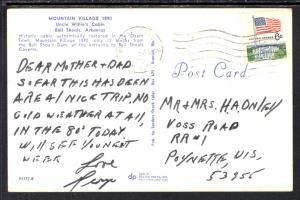 MOUNTAIN VILLAGE 1890
Uncle Willie's Cabin
Bull Shoals, Arkansas
Historic cabin authentically restored in the Ozark
Town, Mountain Village 1890, only 12 blocks from
the Bull Shoals Dam, at the entrance to Bull Shoals
Caverns.
DEAR MOTHER + DAD
SO FAR THIS HAS BEEN
A REAL NICE TRIP, NO
COLD WEATHER AT ALL
IN THE 80's TODAY
WILL SEE YOU NEXT
WEEK
Love
Post Card
6c
MR & MRS. HADNLEY
VOSS ROAD
RR #1
POYNETTE, WIS,
53955
54137-B
dp